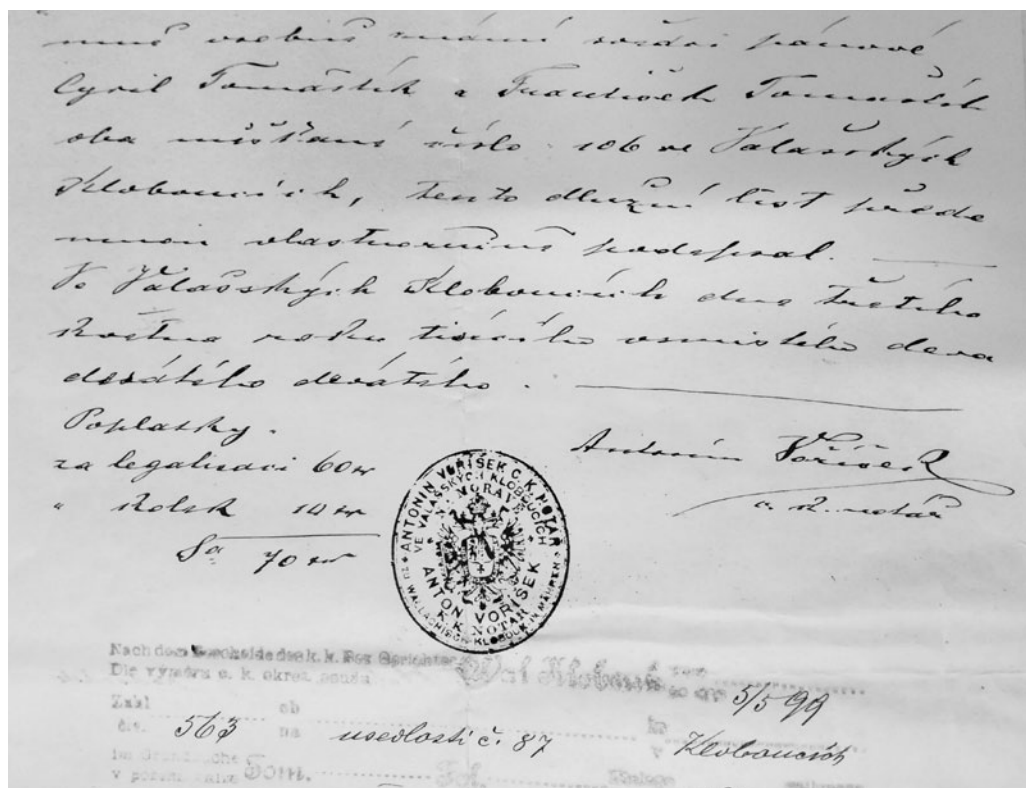 mně osobně známí soudci pánové
Cyril Tomaštík a František Tomaštík
oba měšťané číslo 106 ve Valašských
Kloboucích, tento dlužní list přede
mnou vlastnoručně podepsal.
Ve Valašských Kloboucích dne třetího
května roku tisícího osmistého deva
desátého devátého.
Poplatky.
za legalisaci 60 kr
" kolek 10 kr
Sa 70 kr
Antonín Voříšek
c. k. notář
ANTONIN VOŘÍŠEK C. K. NOTÁŘ
VE VALAŠSKÝCH KLOBOUCÍCH
NA MORAVĚ
ANTON VOŘIŠEK
K. K. NOTAR
ZU WALLACHISCH-KLOBOUK IN MÄHREN
Nach dem Bescheide des k. k. Bez. Gerichtes Wal. Klobouk vom
Dle výměru c. k. okres. soudu ze dne 5/5 99
Zahl ob
čís. 563 na usedlosti č. 87 v Kloboucích
im Grundbuche
v pozem. knize Tom. Fol.